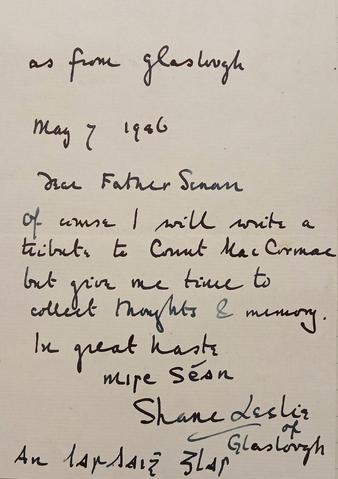 as from Glaslough
May 7 1946
Dear Father Senan
Of course I will write a
tribute to Count MacCormac
but give me time to
collect thoughts & memory.
In great haste
mire Seán
Shane Leslie
of
Glaslough
An